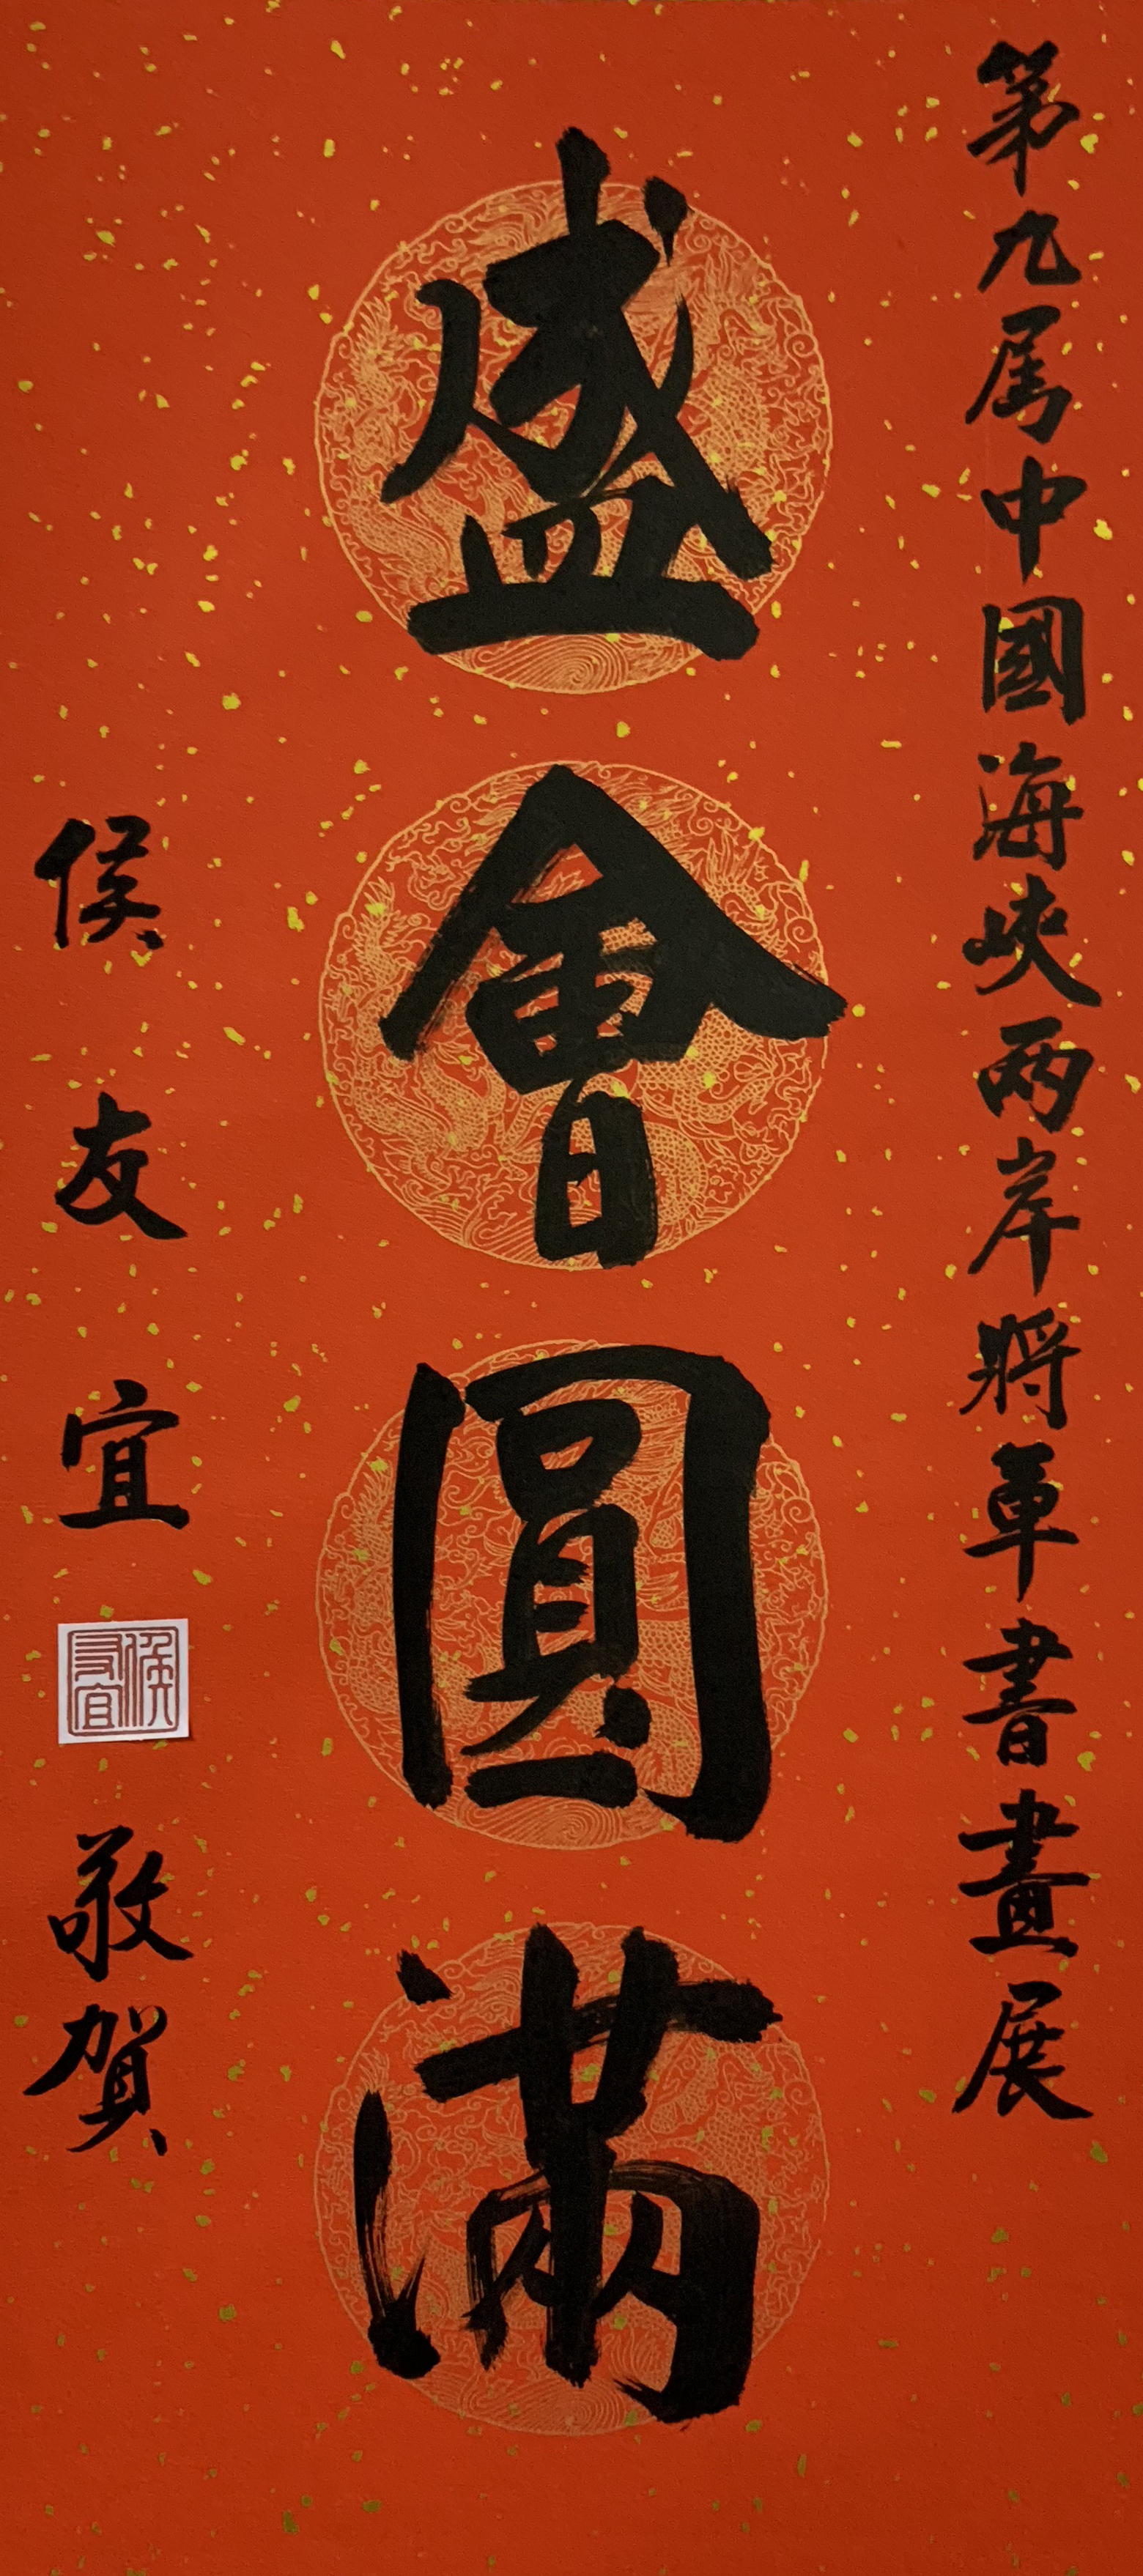 第九屆中國海峽兩岸將軍書畫展
盛會圓滿
侯友宜
侯友宜
敬賀